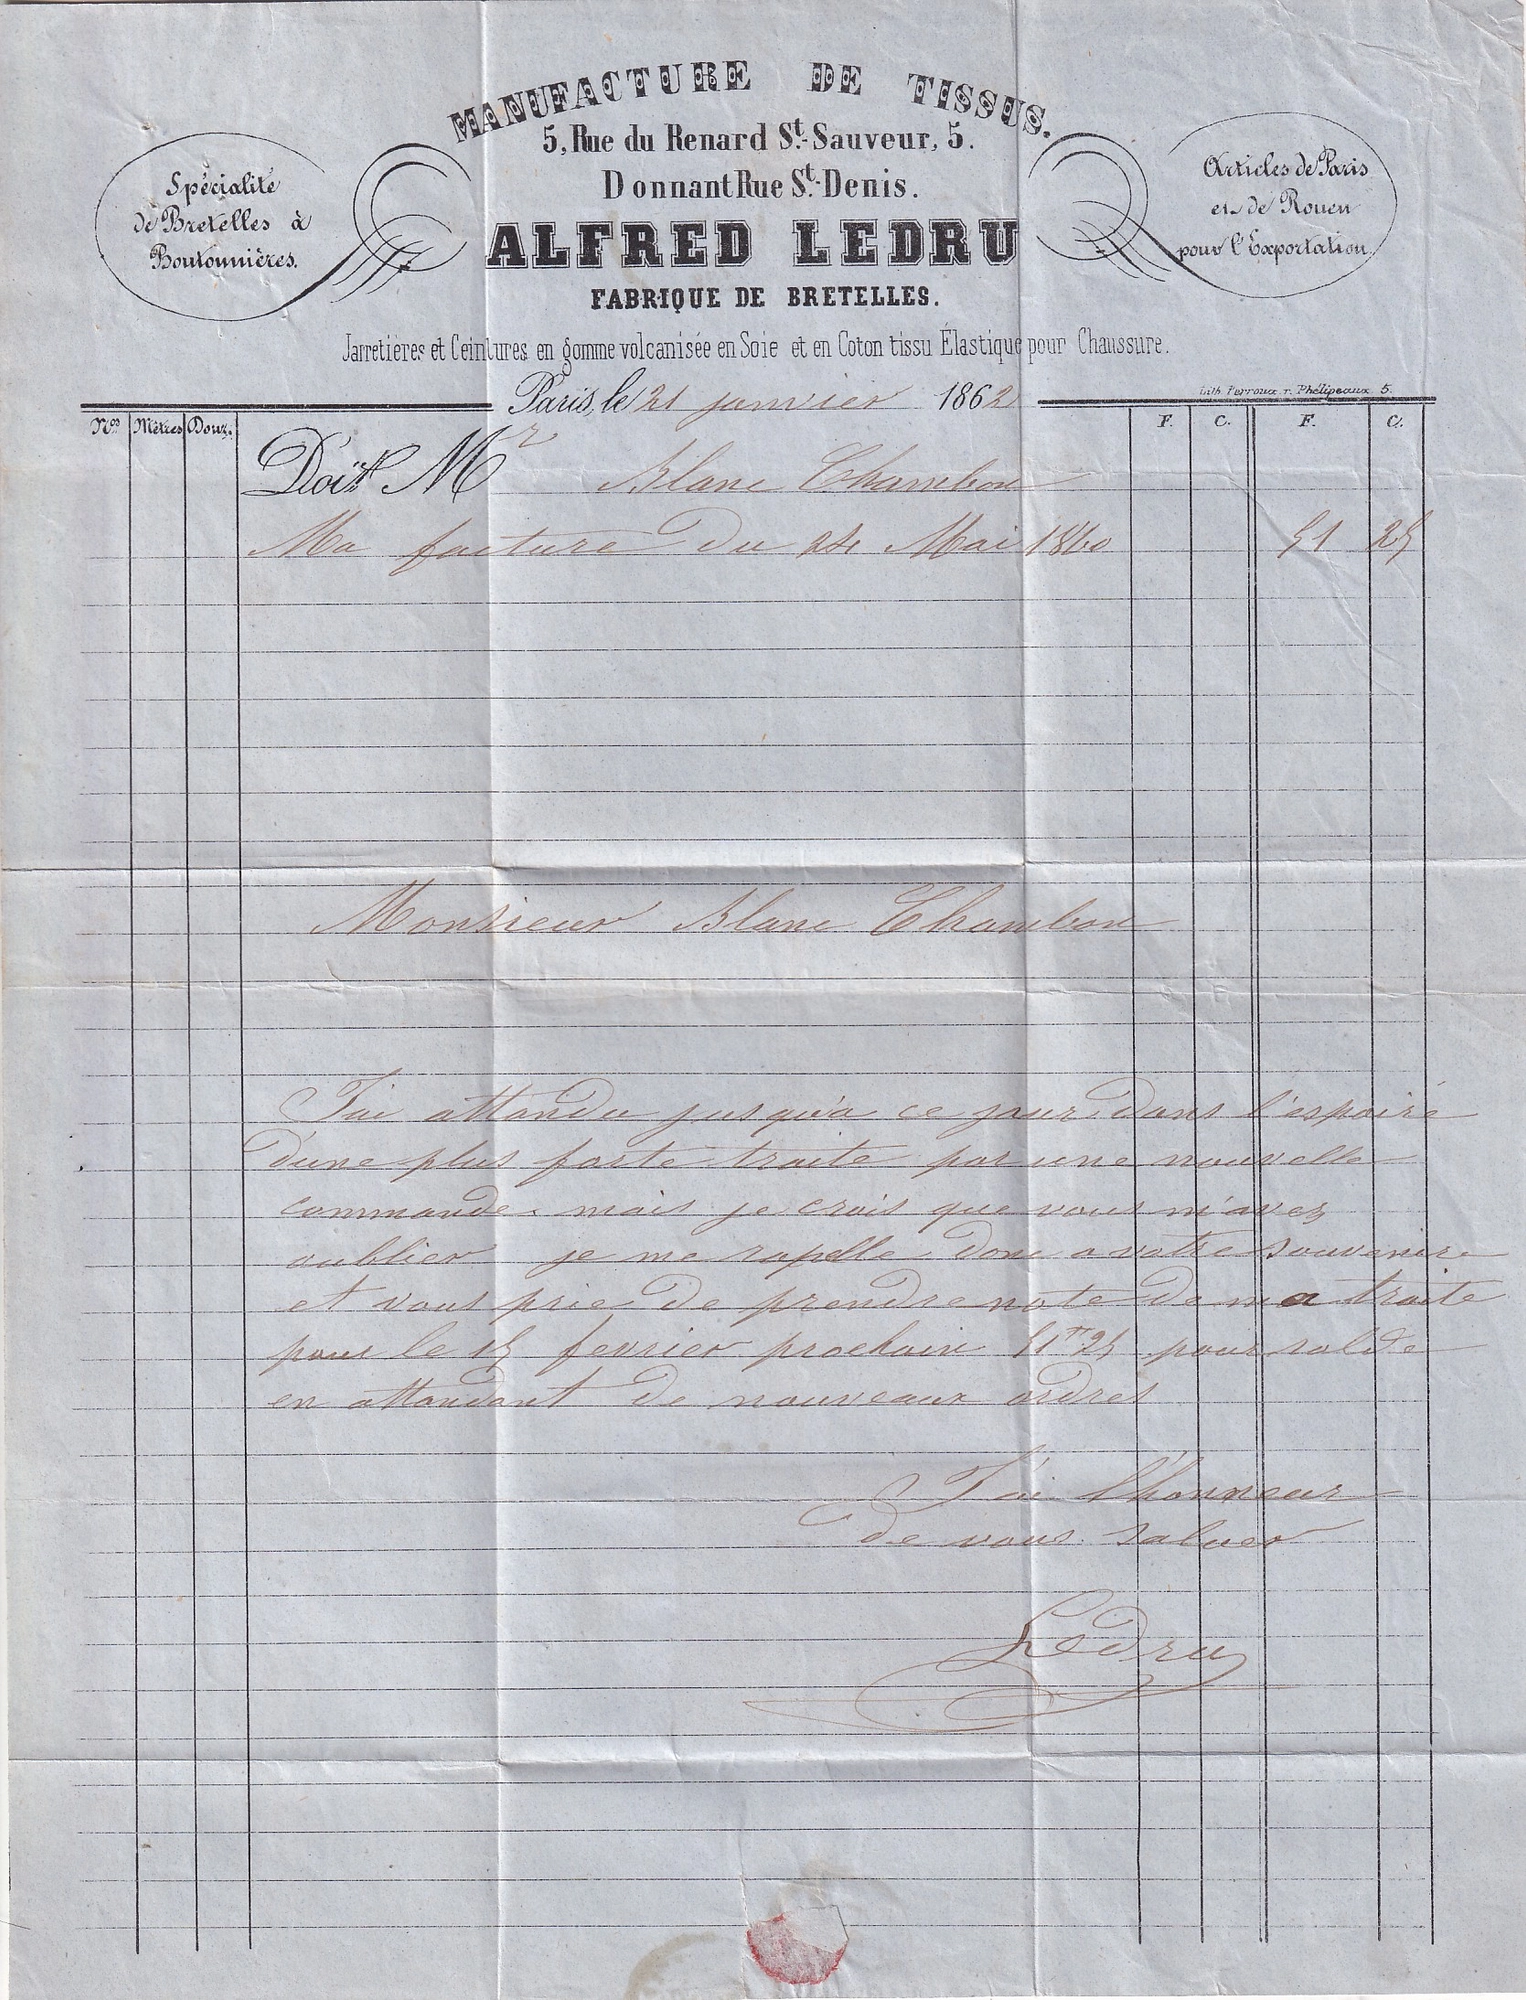 MANUFACTURE DE TISSUS.
5, Rue du Renard St.-Sauveur, 5.
Donnant Rue St.-Denis.
ALFRED LEDRU
FABRIQUE DE BRETELLES.
Spécialité
de Bretelles à
Boutonnières.
Articles de Paris
et de Rouen
pour l'Exportation.
Jarretières et Ceintures en gomme volcanisée en Soie et en Coton tissu Élastique pour Chaussure.
Lith. Perroux r. Phélipeaux 5.
Paris, le 21 janvier 1862
Nos Mètres Douz. F. C. F. C.
Doit Mr Blanc Chambon
Ma facture du 24 Mai 1860 51 25
Monsieur Blanc Chambon
J'ai attendu jusqu'a ce jour dans l'espoire
d'une plus forte traite par une nouvelle
commande. mais je crois que vous m'avez
oublier je me rapelle donc a votre souvenire
et vous prie de prendre note de ma traite
pour le 15 fevrier prochain 51 25 pour solde
en attendant de nouveaux ordres
J'ai l'honneur
de vous saluer
Ledru